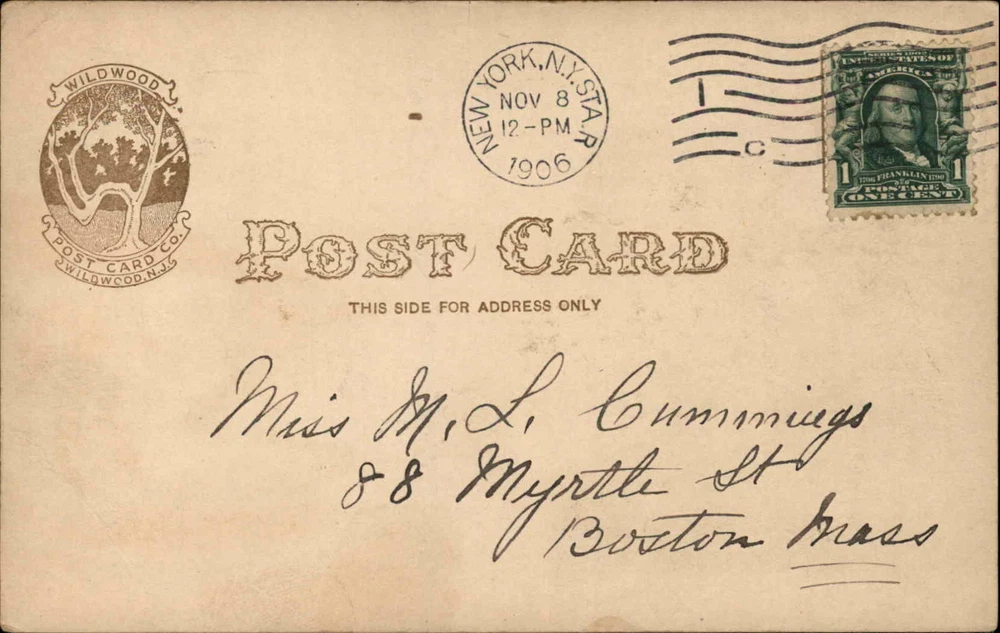 WILDWOOD
POST CARD CO.
WILDWOOD, N.J.
NEW YORK, N.Y. STA. R
NOV 8
12-PM
1906
1
C
SERIES 1902
UNITED STATES OF
AMERICA
1 1
1706 FRANKLIN 1790
POSTAGE
ONE CENT
POST CARD
THIS SIDE FOR ADDRESS ONLY
Miss M. L. Cummings
88 Myrtle St
Boston Mass